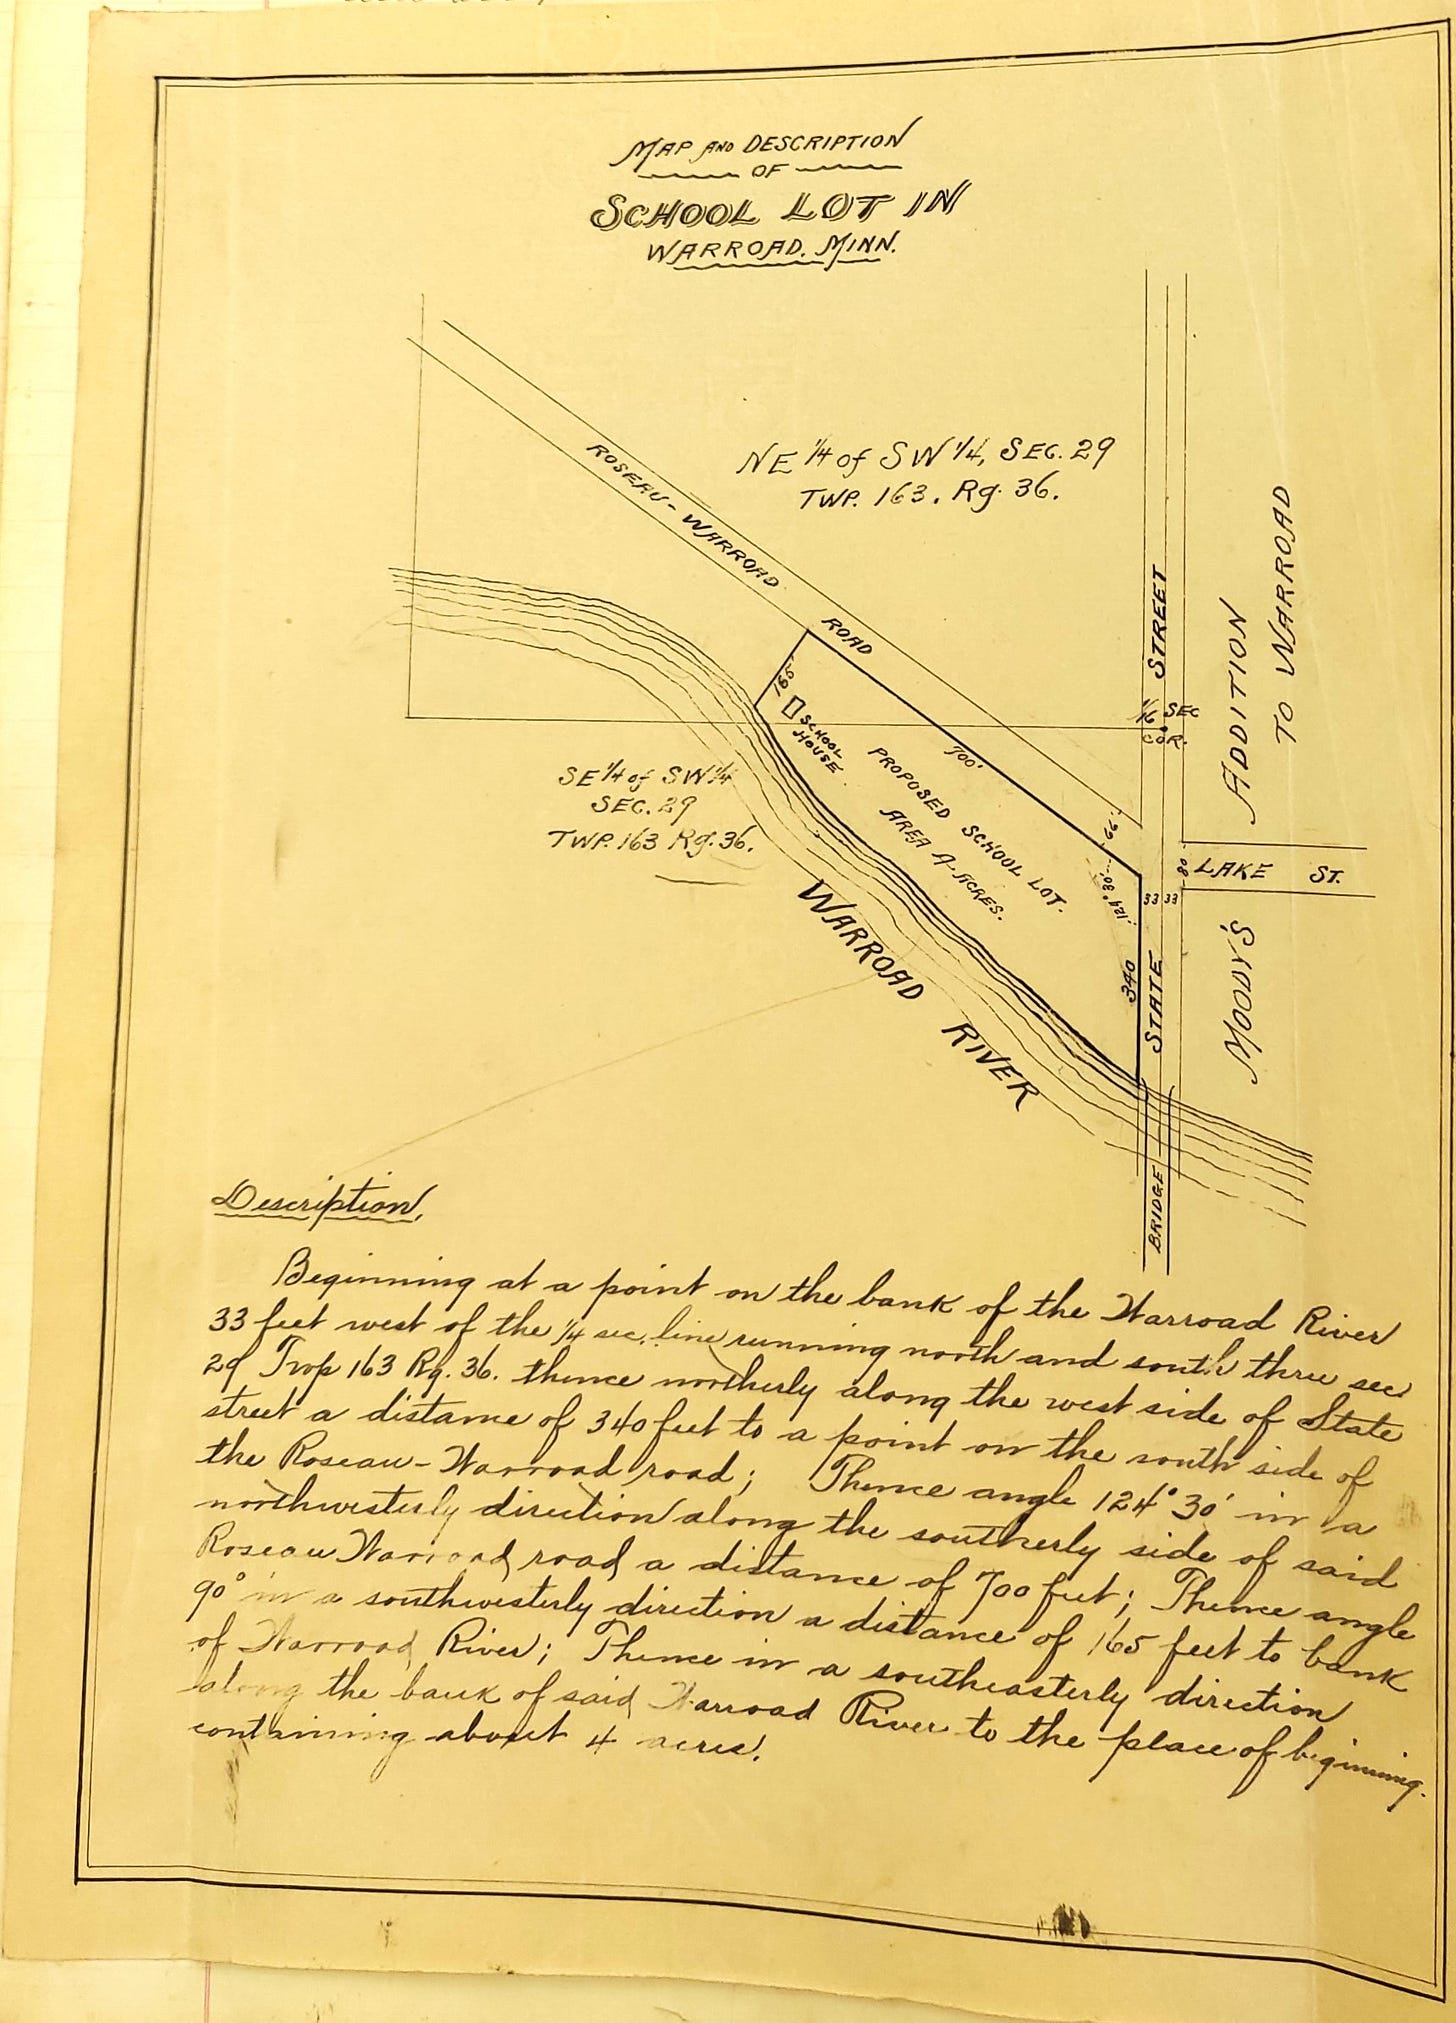 MAP AND DESCRIPTION
OF
SCHOOL LOT IN
WARROAD, MINN.
NE 1/4 of SW 1/4, SEC. 29
TWP. 163. Rg. 36.
ROSEAU - WARROAD
ROAD
STREET
ADDITION
TO WARROAD
165'
SCHOOL
HOUSE
1/16 SEC
COR.
SE 1/4 of SW 1/4
SEC. 29
TWP. 163 Rg. 36.
700'
PROPOSED SCHOOL LOT.
AREA 4-ACRES.
66'
124° 30'
80
LAKE ST.
33 33
340
STATE
MOODY'S
WARROAD RIVER
BRIDGE
Description,
Beginning at a point on the bank of the Warroad River
33 feet west of the 1/4 sec. line running north and south thru sec
29 Twp 163 Rg. 36. thence northerly along the west side of State
street a distance of 340 feet to a point on the south side of
the Roseau-Warroad road; Thence angle 124° 30' in a
northwesterly direction along the southerly side of said
Roseau Warroad road a distance of 700 feet; Thence angle
90° in a southwesterly direction a distance of 165 feet to bank
of Warroad River; Thence in a southeasterly direction
along the bank of said Warroad River to the place of beginning.
containing about 4 acres.